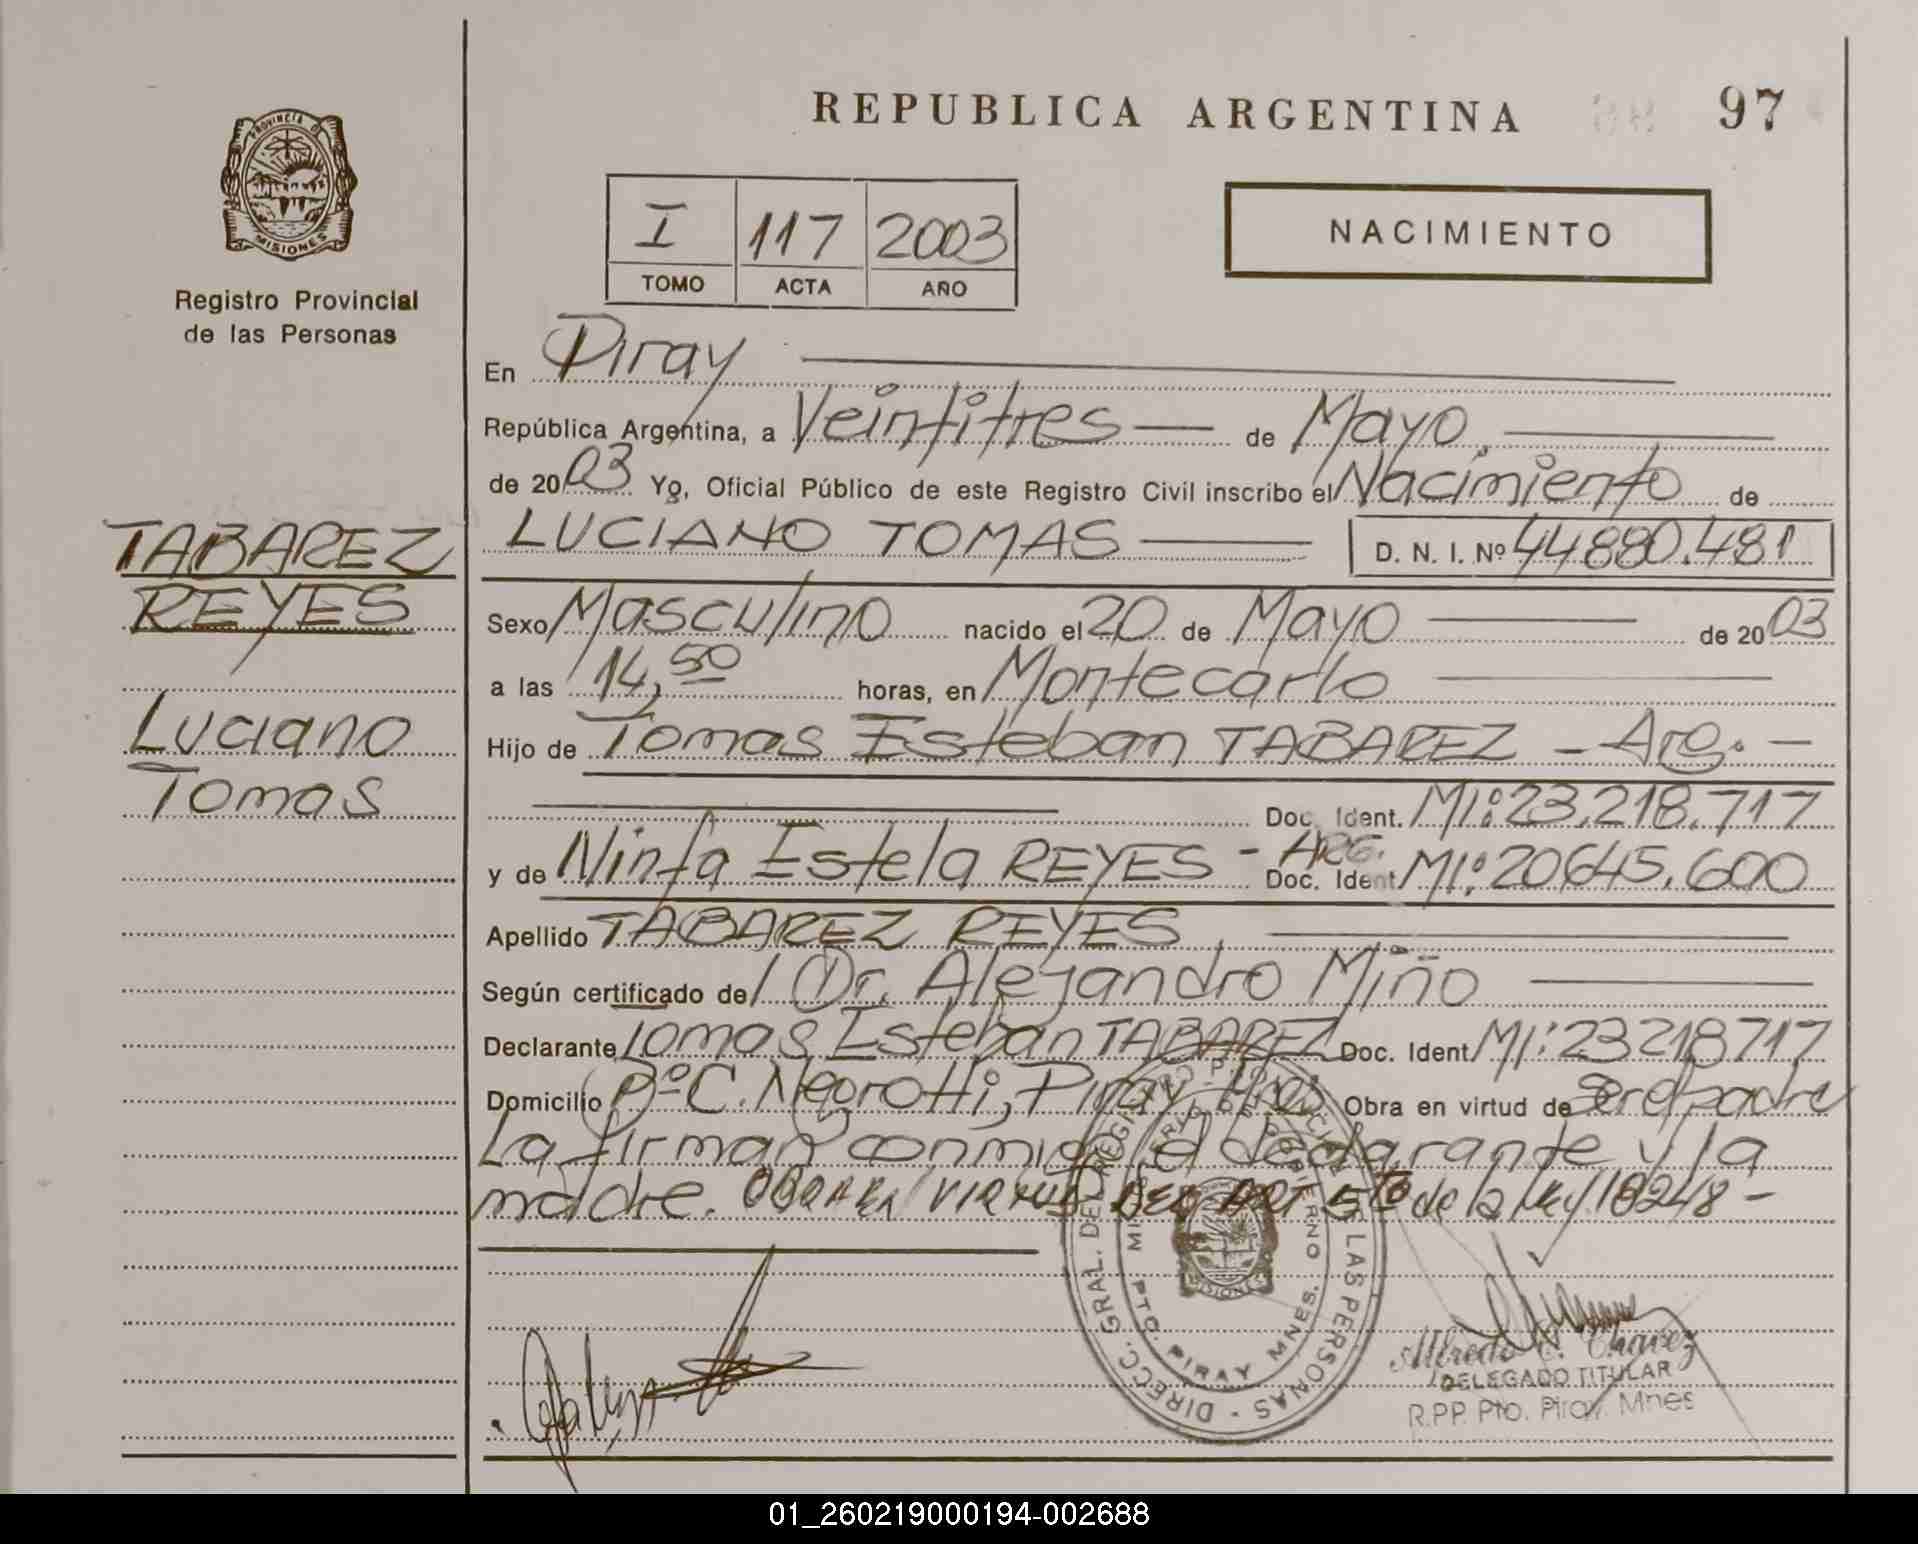 REPUBLICA ARGENTINA 97
PROVINCIA DE
MISIONES
Registro Provincial
de las Personas
I 117 2003
TOMO ACTA AÑO
NACIMIENTO
En Piray
República Argentina, a Veintitres de Mayo
de 2003 Yo, Oficial Público de este Registro Civil inscribo el Nacimiento de
LUCIANO TOMAS D. N. I. Nº 44880.481
TABAREZ
REYES
Luciano
Tomas
Sexo Masculino nacido el 20 de Mayo de 2003
a las 14,50 horas, en Montecarlo
Hijo de Tomas Esteban TABAREZ - Arg. -
Doc. Ident. MI: 23.218.717
y de Ninfa Estela REYES - ARG. Doc. Ident MI: 20645.600
Apellido TABAREZ REYES
Según certificado del Dr. Alejandro Miño
Declarante Tomas Esteban TABAREZ Doc. Ident MI: 23218717
Domicilio Bº C. Negrotti, Piray, Obra en virtud de Ser el padre
La firman conmigo el declarante y la
madre. OBRAN EN VIRTUD DEL ART 5to de la Ley 18248 -
DIRECC. GRAL. DEL REGISTRO PROVINCIAL DE LAS PERSONAS
MINISTERIO DE GOBIERNO
MISIONES
PTO. PIRAY MNES.
Alfredo C. Chavez
DELEGADO TITULAR
R.P.P. Pto. Piray. Mnes
01_260219000194-002688